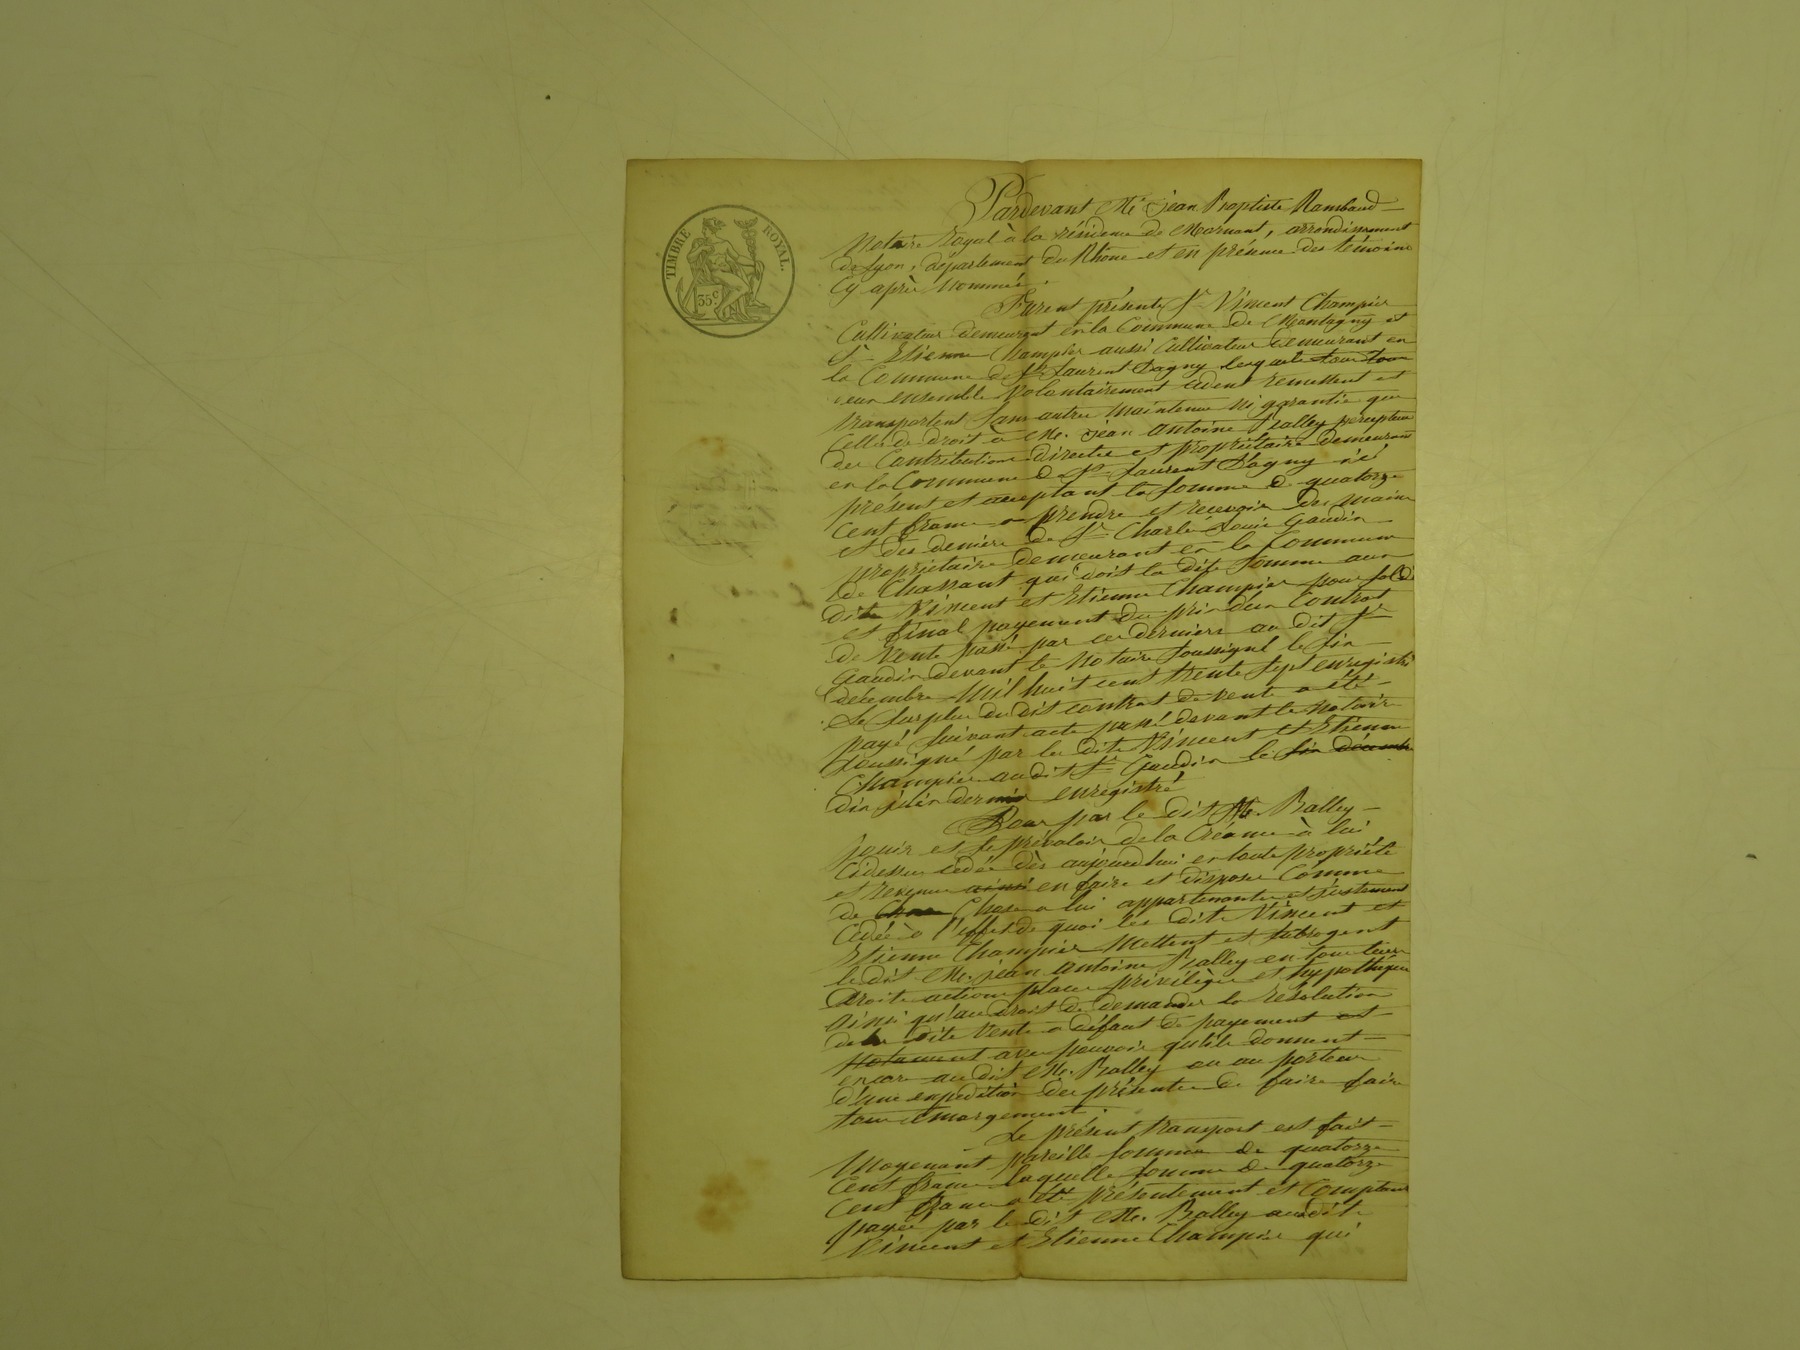 TIMBRE ROYAL.
35c
Pardevant Me jean Baptiste Rambaud
Notaire Royal à la résidence de Mornant, arrondissement
de Lyon, département du Rhone et en présence des témoins
cy après Nommés.
Furent présents Sr Vincent Champier
Cultivateur demeurant en la Commune de Montagny et
Sr Etienne Champier aussi Cultivateur demeurant en
la Commune de St Laurent Dagny lesquels tous
eux ensemble Volontairement cèdent remettent et
transportent sans autre maintenue ni garantie que
Celle de droit à Me. jean antoine Balley percepteur
des Contributions directes et propriétaire demeurant
en la Commune de St Laurent Dagny ici
présent et acceptant la somme de quatorze
cent francs a prendre et recevoir des mains
et des deniers de Sr Charle Louis Gaudin
propriétaire demeurant en la Commune
de Chassant qui doit la dite somme aux
dits Vincent et Etienne Champier pour solde
et final payement du prix d'un Contrat
de Vente passé par ces derniers au dit Sr
Gaudin devant le Notaire Soussigné le six
décembre Mil huit cent trente sept enregistré
Le Surplus du dit contrat de vente a été
payé suivant acte passé devant le Notaire
soussigné par les dits Vincent et Etienne
Champier au dit Sr Gaudin le six décembre
dix juin dernier enregistré
Pour par le dit Me. Balley
jouir et se prévaloir de la Créance à lui
Cidessus cédée dès aujourdhui en toute propriété
et revenus ainsi en faire et disposer Comme
de Chose Chose a lui appartenante et justement
Cédée à l'effet de quoi les dits Vincent et
Etienne Champier Mettent et subrogent
le dit Me. jean antoine Balley en tous leurs
Droits actions places privilèges et hypothèques
ainsi qu'au droit de demander la résolution
de la dite Vente a défaut de payement et
Notament avec pouvoir qu'ils donnent
encore au dit Me. Balley ou au porteur
d'une expédition des présentes de faire faire
tous émargements.
Le présent transport est fait
Moyenant pareille somme de quatorze
Cent francs laquelle somme de quatorze
Cent francs a été présentement et Comptant
payée par le dit Me. Balley auxdits
Vincent et Etienne Champier qui